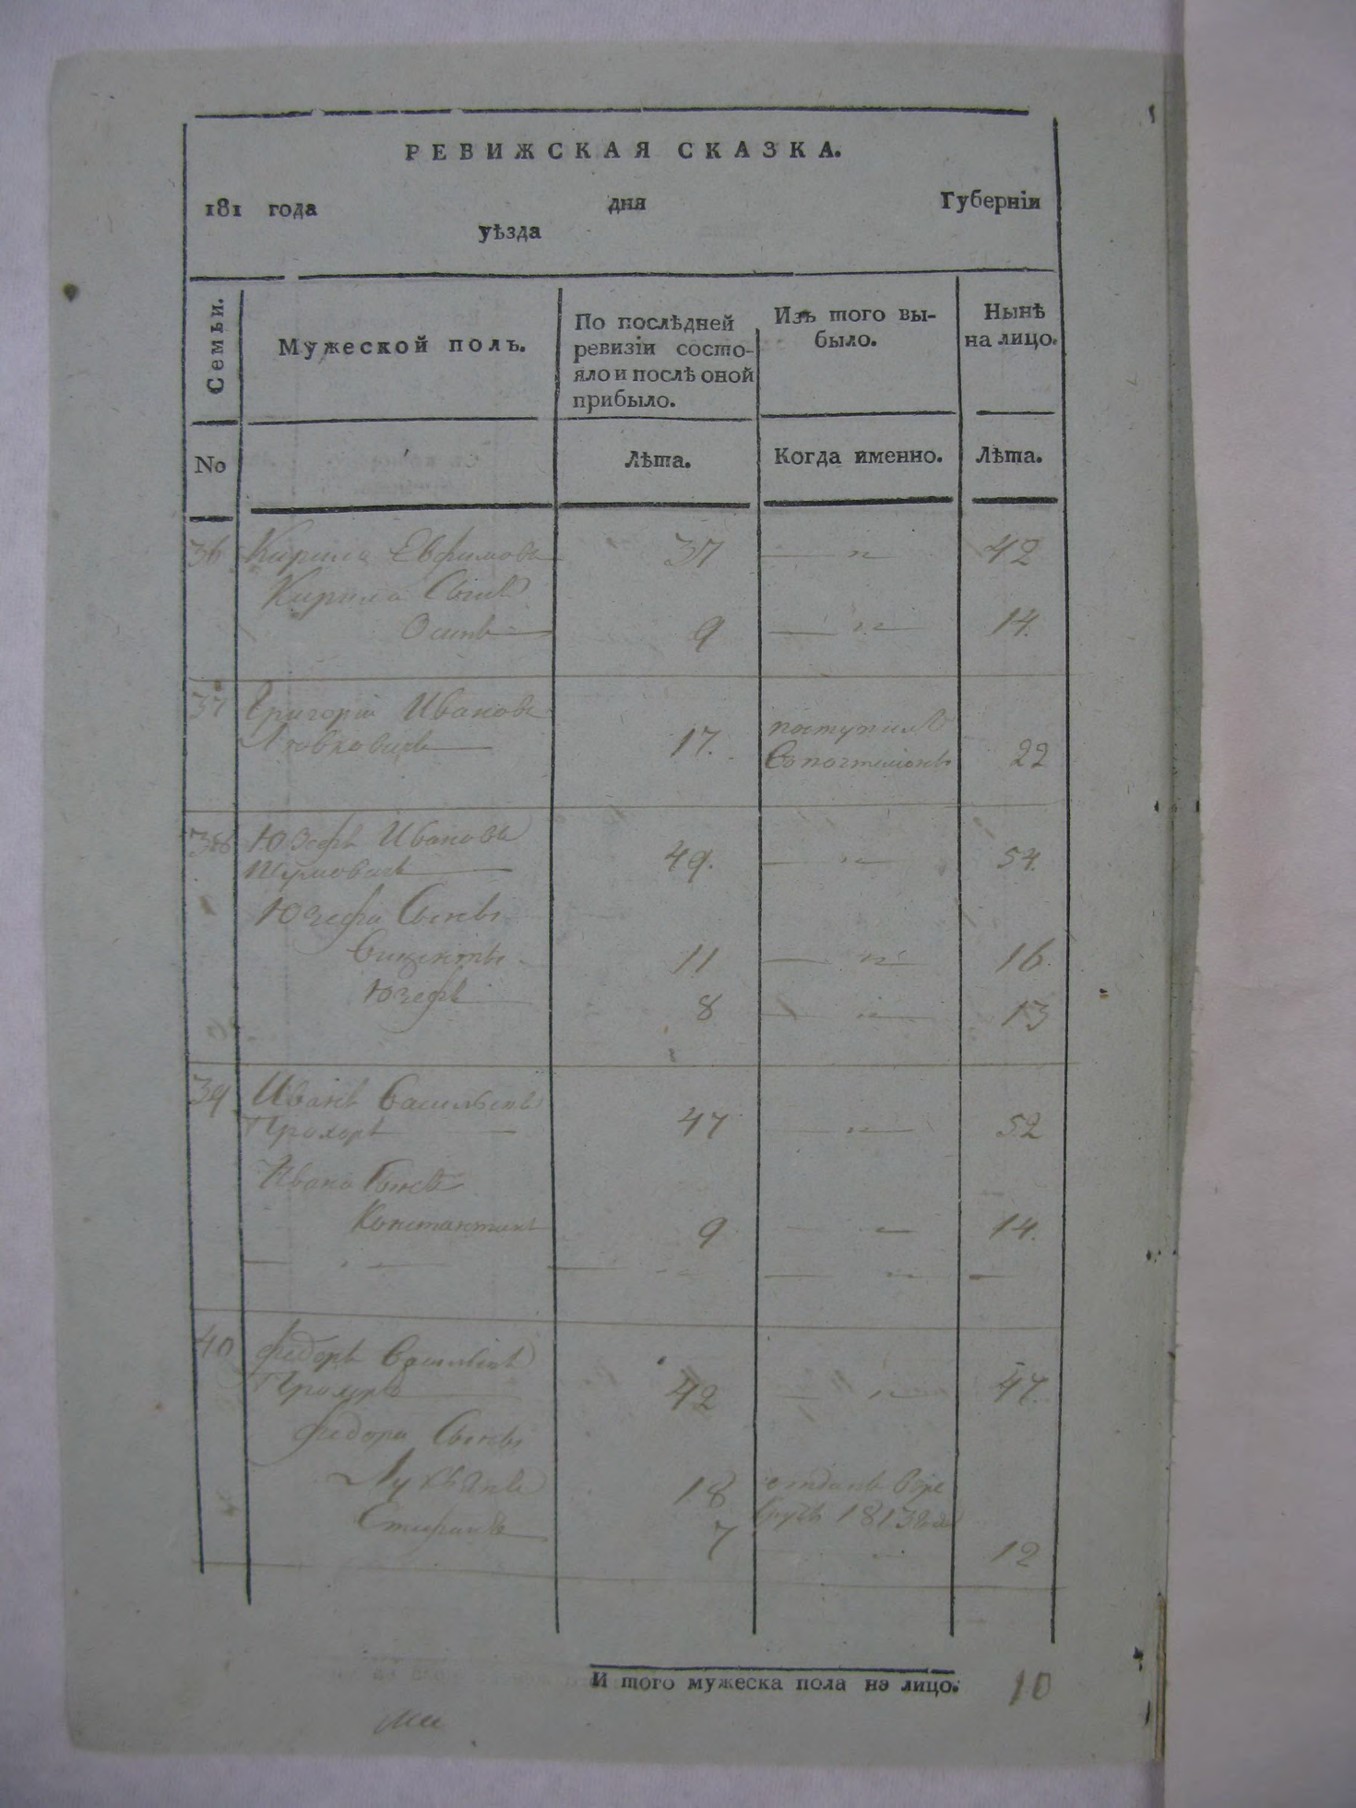 РЕВИЖСКАЯ СКАЗКА.
181 года дня Губерніи
уѣзда
Семьи.
Мужеской полъ.
По послѣдней
ревизіи состо-
яло и послѣ оной
прибыло.
Изъ того вы-
было.
Нынѣ
на лицо.
No
Лѣта.
Когда именно.
Лѣта.
36 Кирила Евфимовъ 37 — „ 42
Кирила Сынъ
Осипъ 9 — „ 14.
37 Григорій Ивановъ
17. поступилъ 22
38 Юзефъ Ивановъ
49. — „ 54.
Юзефа Сыновья
Викентій 11 — „ 16.
Юзефъ 8 — „ 13
39 Иванъ Васильевъ
Прохоръ 47 — „ 52
Ивана Сынъ
Константинъ 9 — „ 14.
40 Федоръ Васильевъ
Прохоръ 42 — „ 47.
Федора Сыновья
Лукьянъ 18 отданъ въ ре
круты 1813 года
Стефанъ 7 — „ 12
И того мужеска пола на лицо. 10